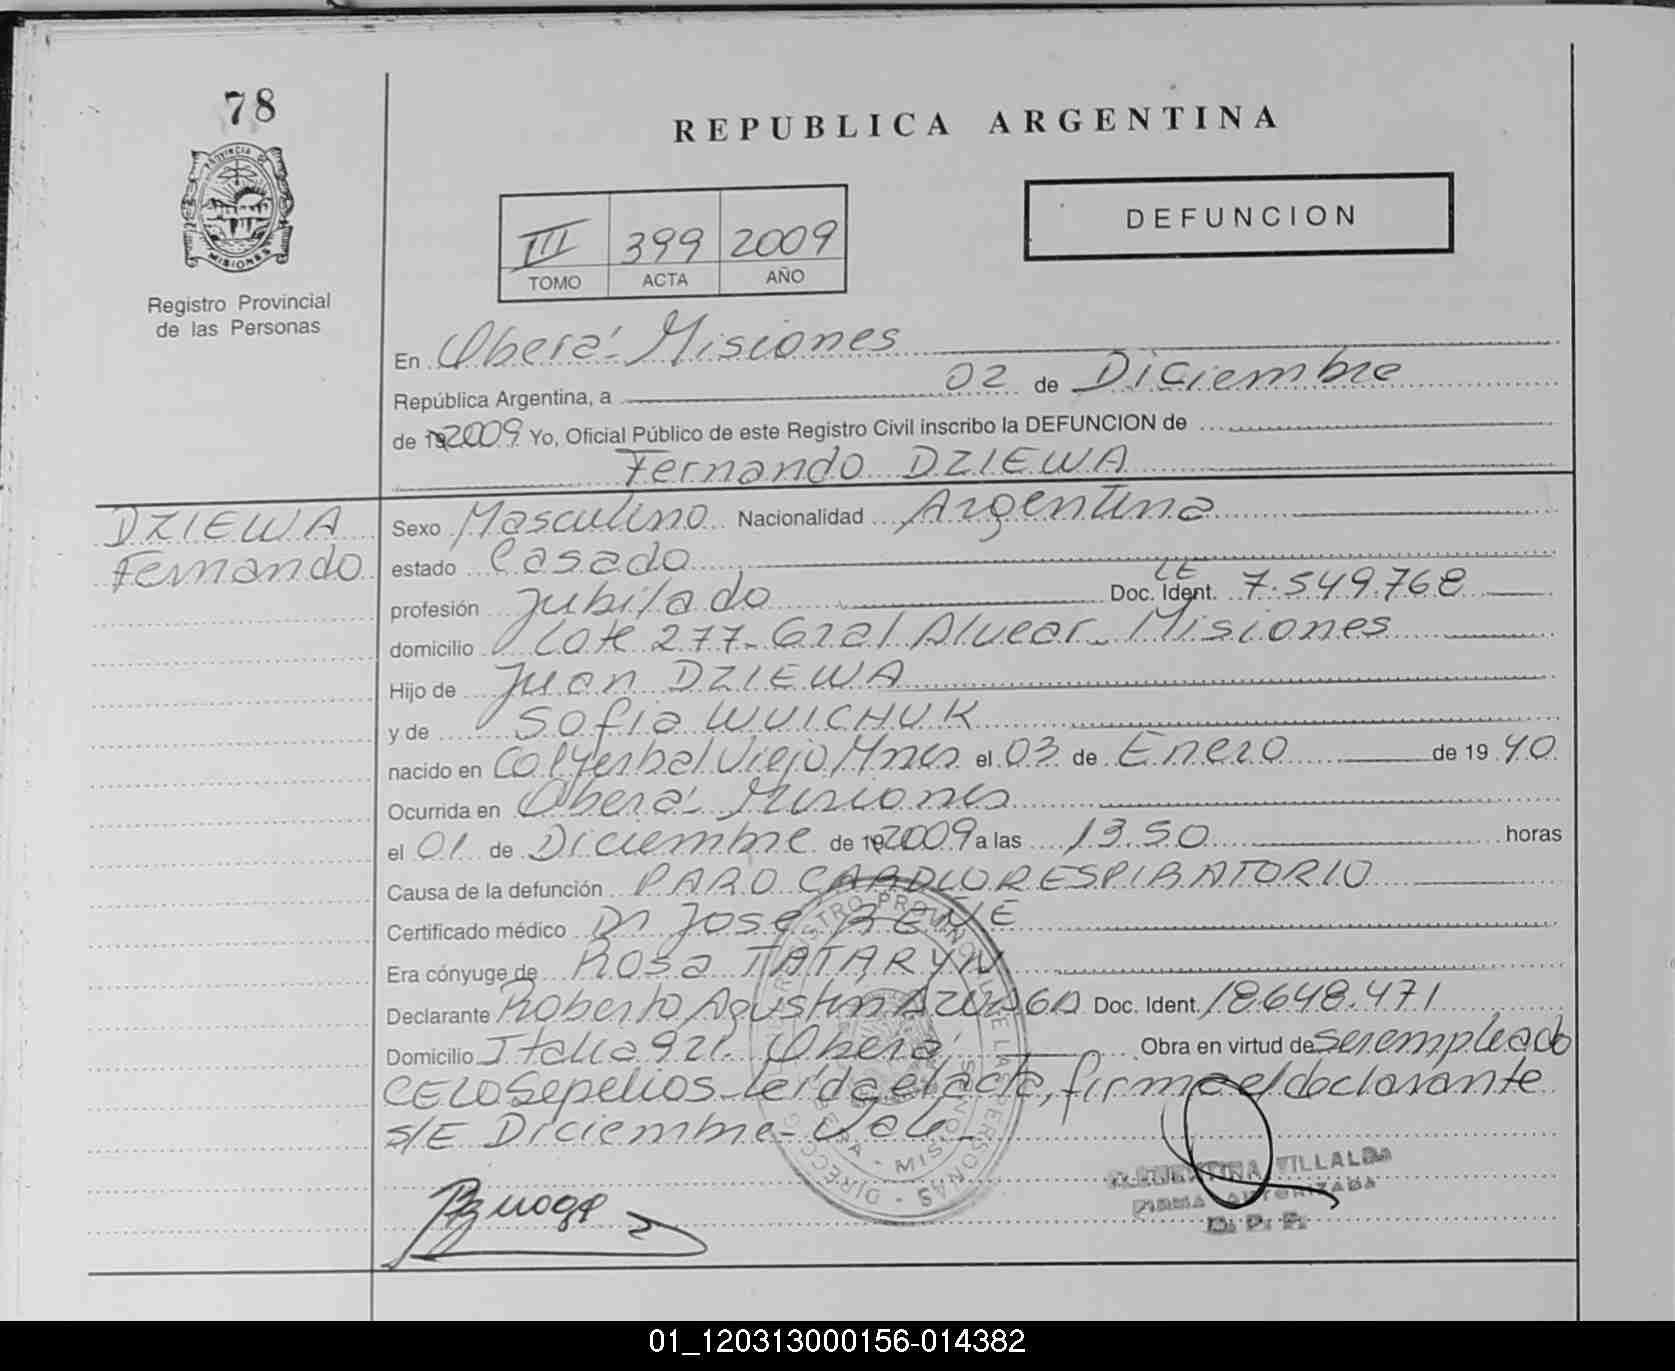 78
REPUBLICA ARGENTINA
PROVINCIA DE
MISIONES
Registro Provincial
de las Personas
III 399 2009
TOMO ACTA AÑO
DEFUNCION
En Oberá - Misiones
República Argentina, a 02 de Diciembre
de 19 2009 Yo, Oficial Público de este Registro Civil inscribo la DEFUNCION de
Fernando DZIEWA
DZIEWA
Fernando
Sexo Masculino Nacionalidad Argentina
estado Casado
profesión Jubilado Doc. Ident. LE 7.549.768
domicilio Lote 277 - Gral Alvear - Misiones
Hijo de Juan DZIEWA
y de Sofia WUICHUK
nacido en Col Yerbal Viejo Mnes el 03 de Enero de 19 40
Ocurrida en Oberá - Misiones
el 01 de Diciembre de 19 2009 a las 13.50 horas
Causa de la defunción PARO CARDIORESPIRATORIO
Certificado médico Dr José BENE
Era cónyuge de Rosa TATARYN
Declarante Roberto Agustin AZUAGA Doc. Ident. 18.648.471
Domicilio Italia 921. Oberá Obra en virtud de ser empleado
CELO Sepelios - Leída el acta, firma el declarante
S/E Diciembre - Vale -
VILLALBA
FIRMA AUTORIZADA
D. P. P.
01_120313000156-014382